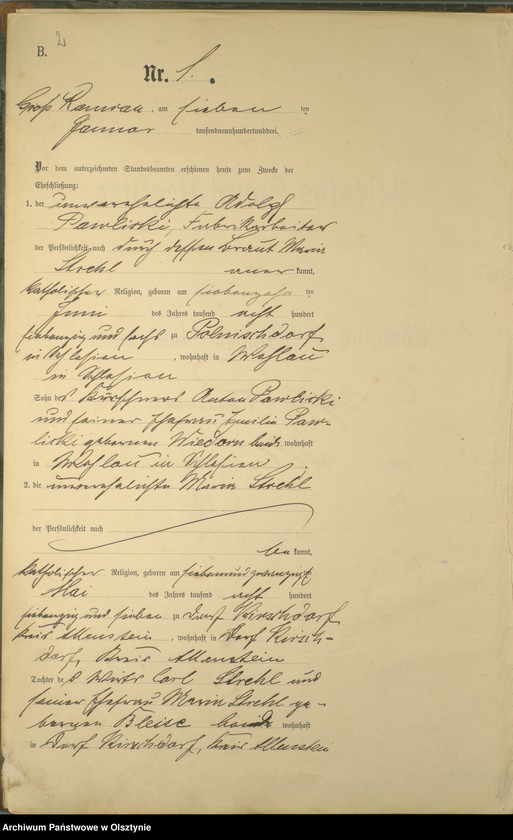 2
B.
Nr. 1.
Groß Ramsau am sieben ten
Januar tausendneunhundertunddrei.
Vor dem unterzeichneten Standesbeamten erschienen heute zum Zwecke der
Eheschließung:
1. der unverehelichte Adolf
Pawlirski, Fabrikarbeiter
der Persönlichkeit nach durch dessen Braut Maria
Strehl anerkannt,
katholischer Religion, geboren am siebenzehn ten
Juni des Jahres tausend acht hundert
siebenzig und sechs zu Polnischdorf
in Schlesien, wohnhaft in Wohlau
in Schlesien
Sohn des Kürschners Anton Pawlirski
und seiner Ehefrau Emilie Paw-
lirski geborenen Wiedorn beide wohnhaft
in Wohlau in Schlesien.
2. die unverehelichte Maria Strehl
der Persönlichkeit nach
bekannt,
katholischer Religion, geboren am siebenundzwanzigst
Mai des Jahres tausend acht hundert
siebenzig und sieben zu Dorf Kirschdorf
Kreis Allenstein, wohnhaft in Dorf Kirsch-
dorf, Kreis Allenstein
Tochter des Wirts Carl Strehl und
seiner Ehefrau Maria Strehl ge-
borenen Bleise beide wohnhaft
in Dorf Kirschdorf, Kreis Allenstein
Archiwum Państwowe w Olsztynie